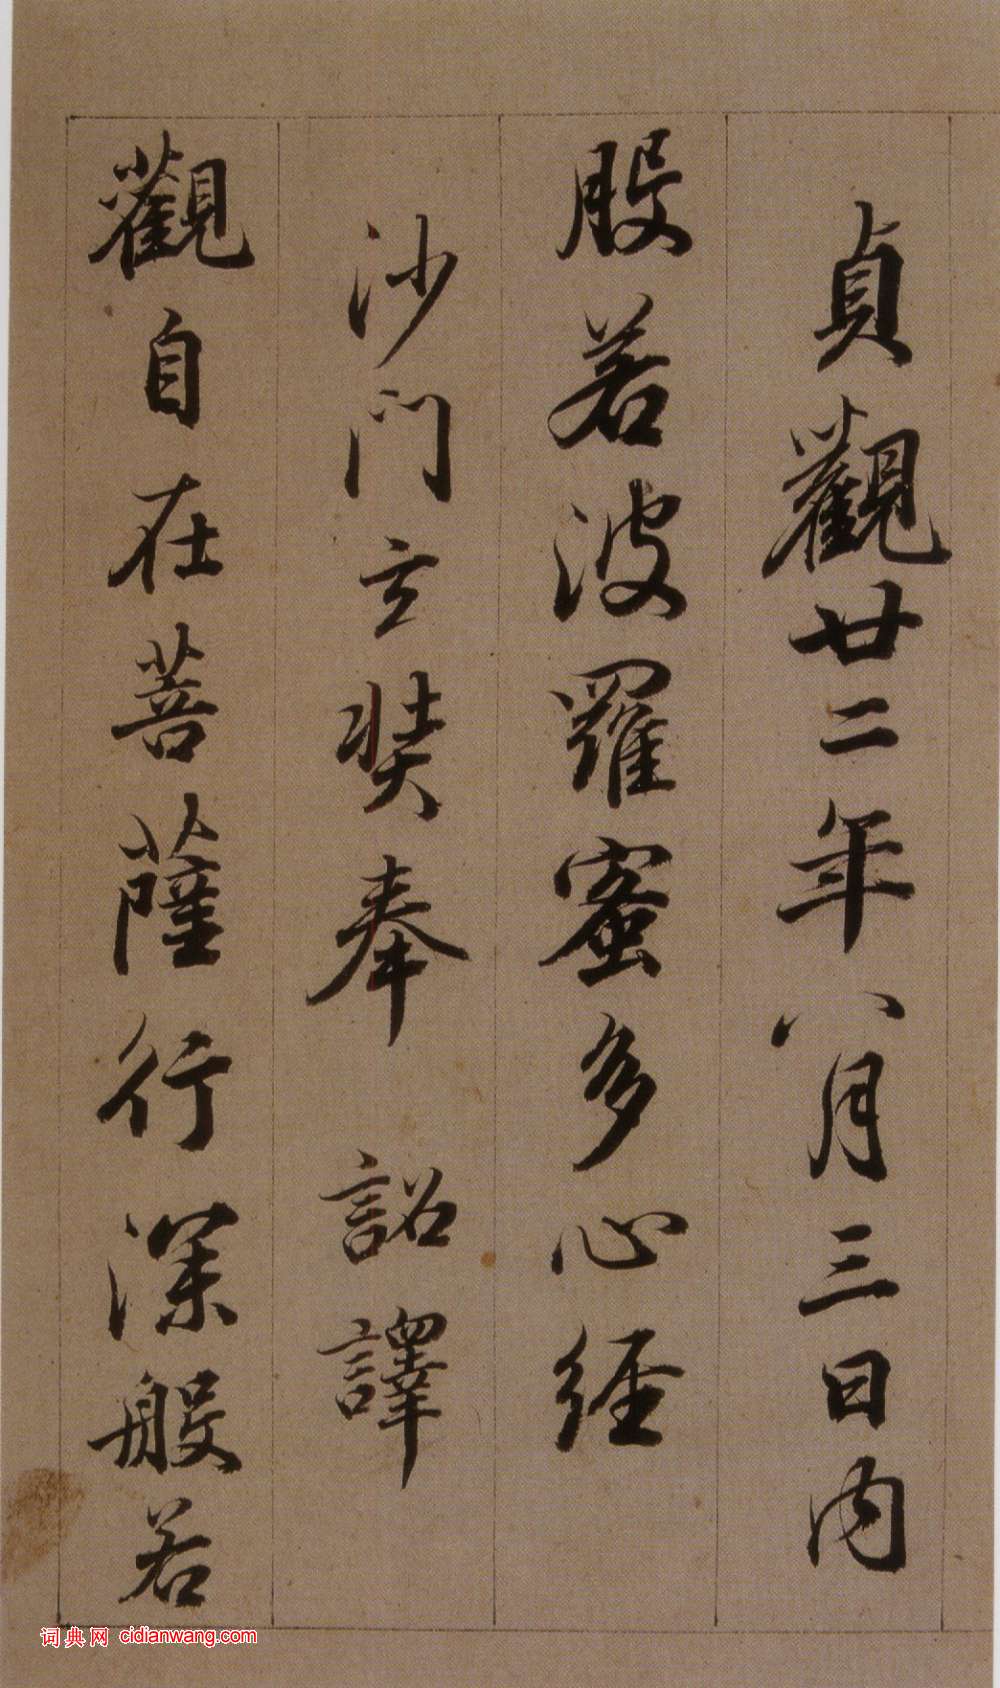 貞觀廿二年八月三日內
般若波羅蜜多心經
沙門玄奘奉 詔譯
觀自在菩薩行深般若
词典网 cidianwang.com